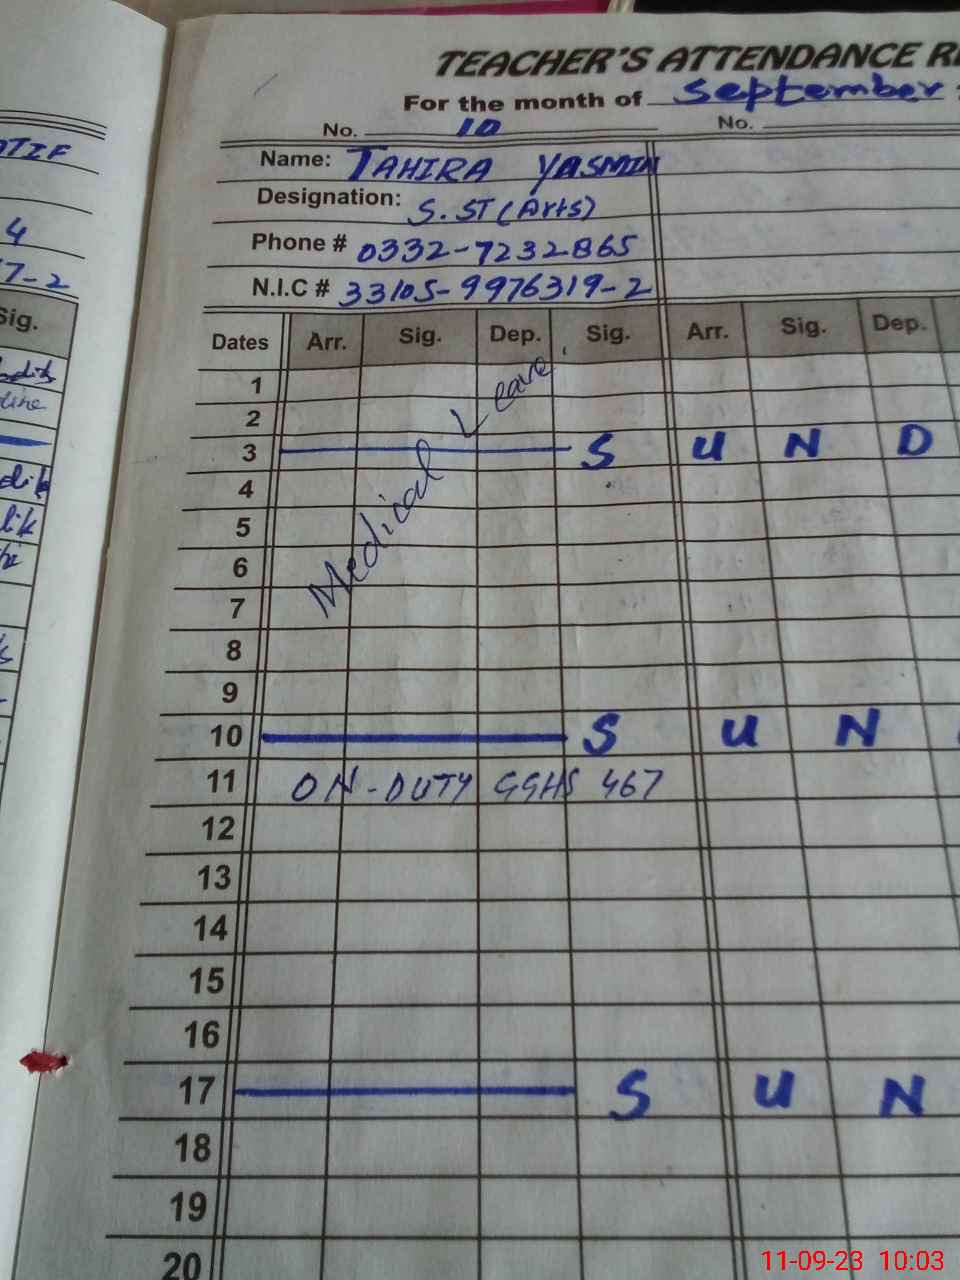 TEACHER'S ATTENDANCE
For the month of September
No. 10 No.
Name: TAHIRA YASMIN
Designation: S.ST (Arts)
4
Phone # 0332-7232865
7-2
N.I.C # 33105-9976319-2
Sig.
Dates Arr. Sig. Dep. Sig. Arr. Sig. Dep.
1
2
3 S U N D
4
5
6
7
Medical Leave
8
9
10 S U N
11 ON-DUTY GGHS 467
12
13
14
15
16
17 S U N
18
19
20
11-09-23 10:03